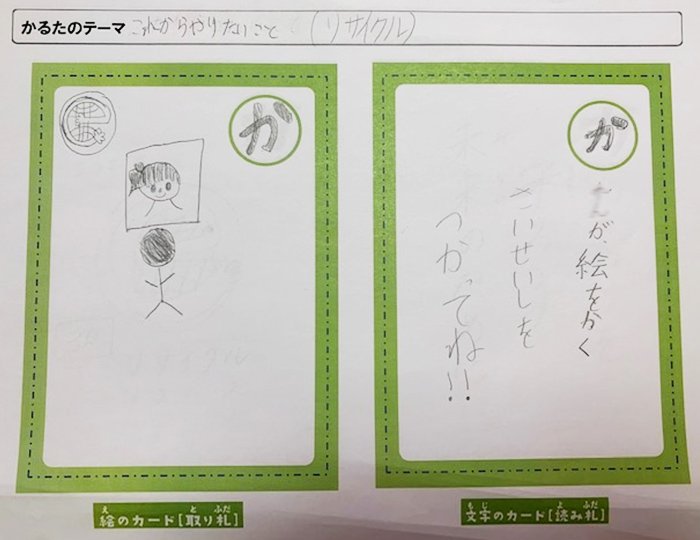 かるたのテーマ これからやりたいこと (リサイクル)
が
が
が、絵をかく
さいせいしを
つかってね!!
絵のカード[取り札]
え と ふだ
文字のカード[読み札]
もじ よ ふだ